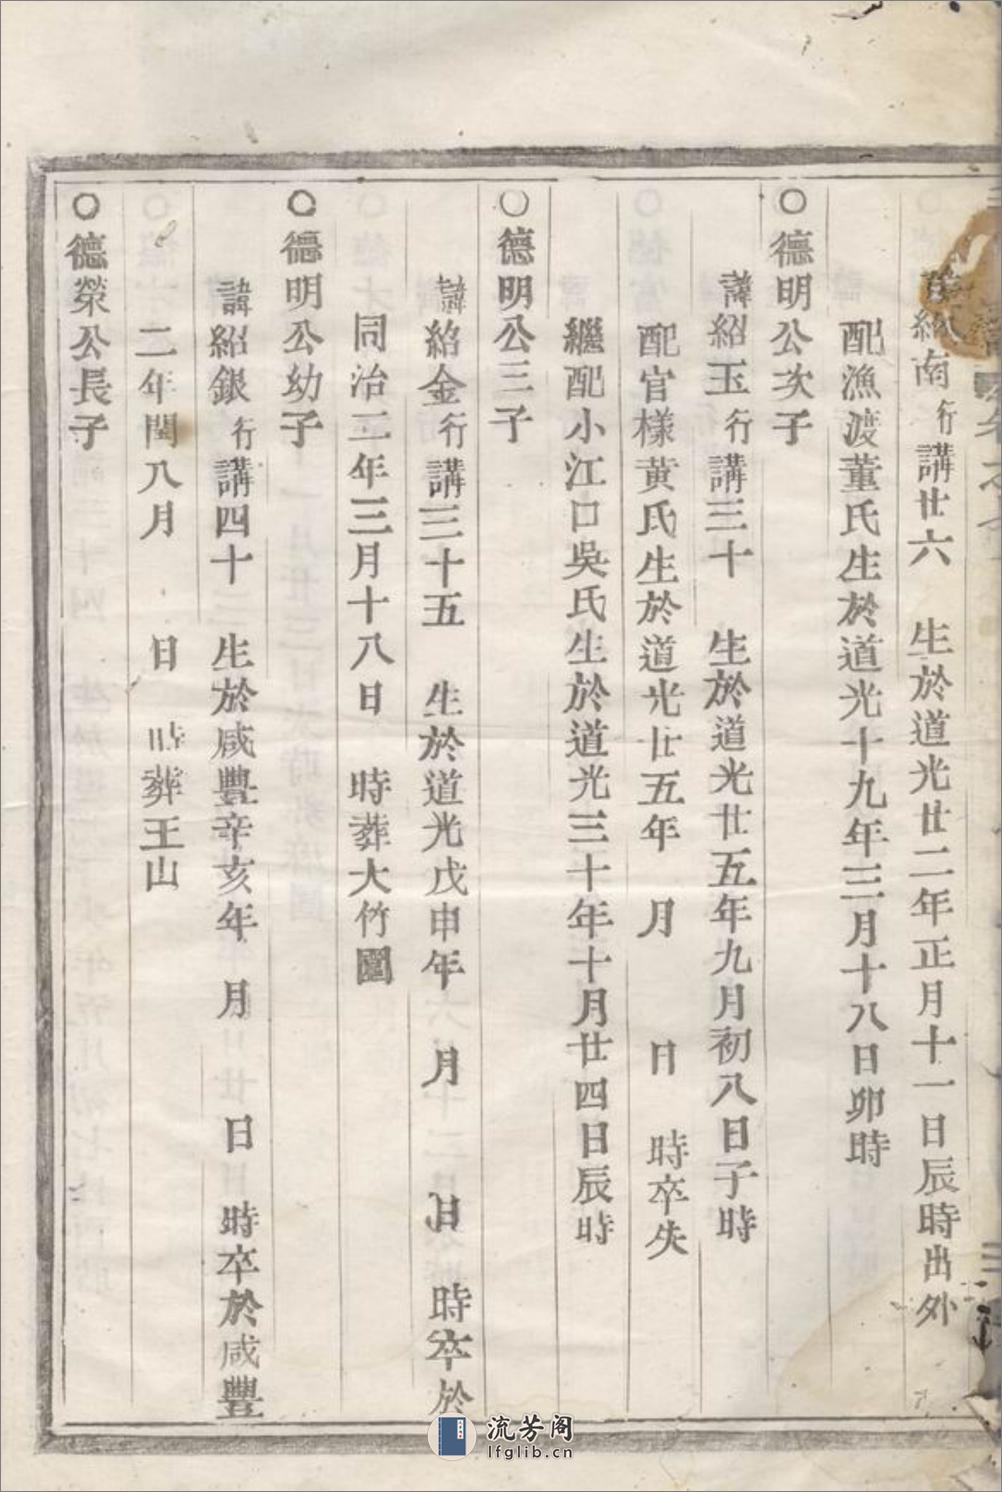 諱紹南行講廿六 生於道光廿二年正月十一日辰時出外
配漁渡董氏生於道光十九年三月十八日卯時
○德明公次子
諱紹玉行講三十 生於道光廿五年九月初八日子時
配官樣黃氏生於道光廿五年 月 日 時卒失
繼配小江口吳氏生於道光三十年十月廿四日辰時
○德明公三子
諱紹金行講三十五 生於道光戊申年 月 日 時卒於
同治二年三月十八日 時葬大竹園
○德明公幼子
諱紹銀行講四十 生於咸豐辛亥年 月 日 時卒於咸豐
二年閏八月 日 時葬王山
○德榮公長子
流芳阁
lfglib.cn